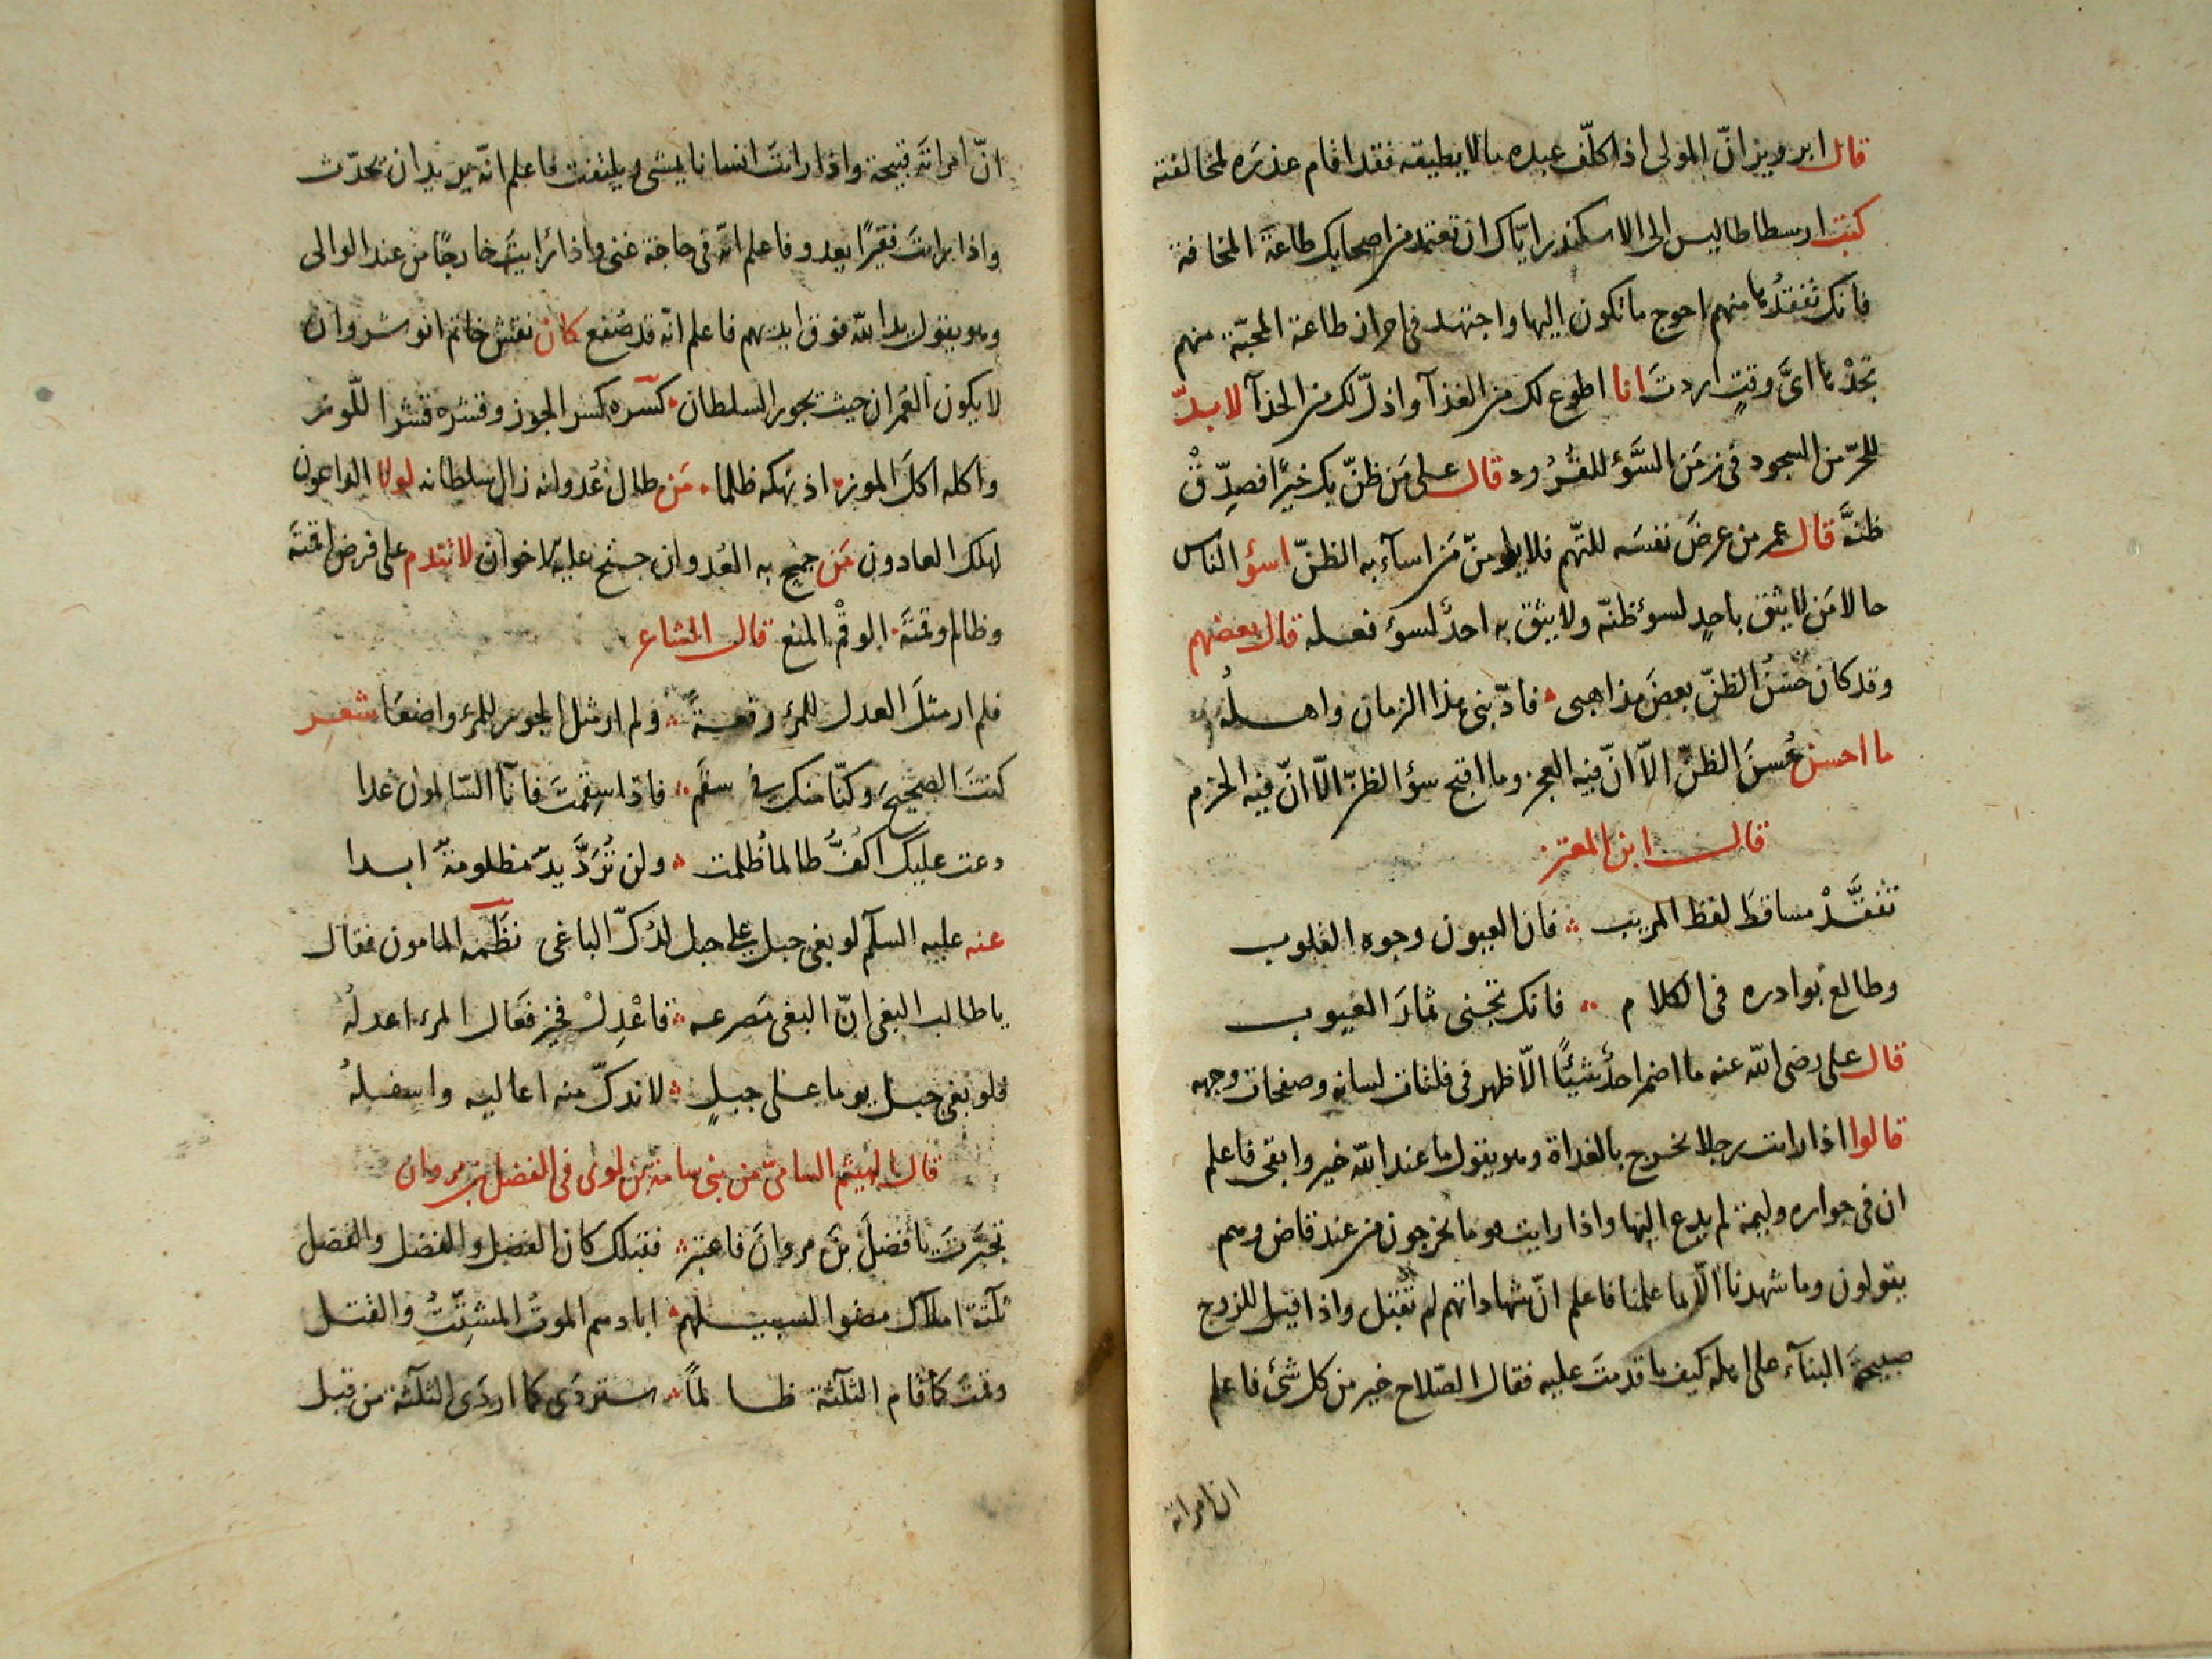 قال ابرويز انّ المولى اذا كلّف عبده ما لا يطيقه فقد اقام عذره لمخالفته
كتب ارسطاطاليس الى الاسكندر ايّاك ان تعتمد من اصحابك طاعة المخافة
فانك تفقدها منهم احوج ما تكون اليها واجتهد فى احراز طاعة المحبّة منهم
تجدها اىّ وقتٍ اردتَ انا اطوع لك من الغذآ واذلّ لك من الحذآ لا بدّ
للحرّ من السجود فى زمَن السَّوْء للقُرُود قال على مَن ظنّ بك خيرًا فصدّقْ
ظنّهَ قال عمر من عرضَ نفسَه للتّهم فلا يلومنّ مَن اسآء به الظنّ اسؤ الناس
حالا مَن لا يثق باحدٍ لسوء ظنّه ولا يثق به احدٌ لسوء فعله قال بعضهم
وقد كان حُسْنُ الظنّ بعضَ مذاهبى فادّبنى هذا الزمان واهله
ما احسن حُسنَ الظنّ الّا انّ فيه العجز وما اقبح سؤ الظنّ الّا انّ فيه الحزم
قال ابن المعتز
تفقَّدْ مساقطَ لفظ المريب فان العيون وجوه القلوب
وطالع بوادره فى الكلام فانك تجنى ثمارَ العيوب
قال على رضى الله عنه ما اضمر احدٌ شيئًا الّا ظهر فى فلتات لسانه وصفحات وجهه
قالوا اذا رايت رجلا يخرج بالغداة وهو يقول ما عند الله خير وابقى فاعلم
ان فى جواره وليمة لم يدع اليها واذا رايت قوما يخرجون من عند قاض وهم
يقولون وما شهدنا الّا بما علمنا فاعلم انّ شهاداتهم لم تُقبَل واذا قيل للزوج
صبيحةَ البنآء على اهله كيف ما قدمتَ عليه فقال الصّلاح خير من كل شئ فاعلم
ان امراته
انّ امراتهَ قبيحة واذا رايتَ انسانا يمشى ويلتفت فاعلم انّه يريد ان يحدّث
واذا رايتَ فقيرًا يعدو فاعلم انّه فى حاجة غنى واذا رايتَ خارجًا من عند الوالى
وهو يقول يد الله فوق ايديهم فاعلم انّه قد صُفع كان نقش خاتم انوشروان
لا يكون العُمران حيث يجور السلطان كسره كسر الجوز وقشره قشر اللّوز
واكله اكلَ الموز اذ نهكه ظلما مَن طال عُدوانه زال سلطانه لولا الواعون
لهلك العادون مَن جمح به العُدوان جنح عليه الاخوان لا تندم على فرض اقمتَه
وظالم وقمتَه الوقْم المنع قال الشاعر
فلم ار مثلَ العدل للمرء رفعةً ولم ار مثل الجور للمرء واضعا شعر
كنتَ الصحيحَ وكنّا منك فى سقم فاذا سقمتَ فانّا السّالمون غدا
دعت عليك اكفٌّ طالما ظُلمت ولن تُرَدَّ يدٌ مظلومةٌ ابدا
عنه عليه السلم لو بغى جبل على جبل لدُكّ الباغى نظمه المامون فقال
يا طالب البغى انّ البغى مَصرعه فاعْدِلْ فخير فعَال المرء اعدلُه
فلو بغى جبل يوما على جبلٍ لاندكّ منه اعاليه واسفله
قال الهيثم السامىّ من بنى سامة بن لوى فى الفضل بن مروان
تجبّرتَ يا فضلَ بنَ مروانَ فاعتبر فقبلك كان الفضل والفضل والفضل
ثلثة املاك مضوا لسبيلهم ابادهم الموتُ المشتّتُ والقتل
وقمتَ كما قام الثلثة ظالمًا ستردَى كما اردَى الثلثة من قبل